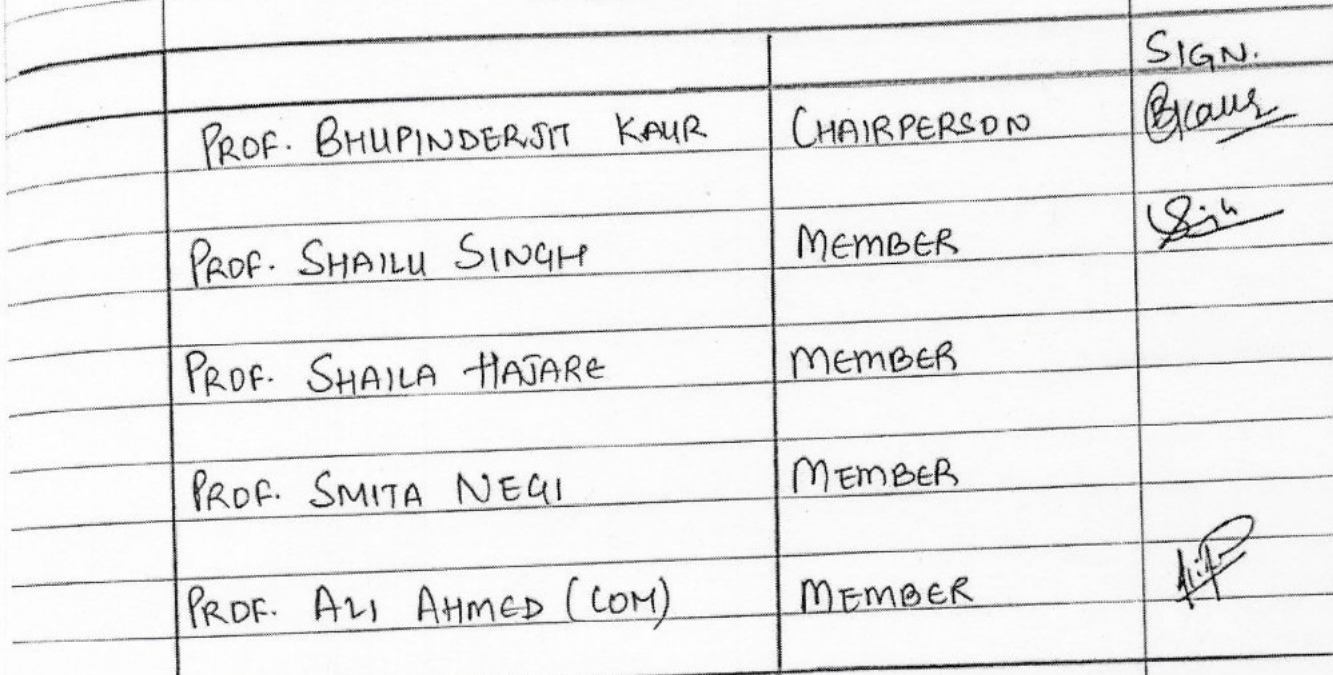 SIGN.
PROF. BHUPINDERJIT KAUR CHAIRPERSON BKaur
PROF. SHAILU SINGH MEMBER
PROF. SHAILA HAJARE MEMBER
PROF. SMITA NEGI MEMBER
PROF. ALI AHMED (COM) MEMBER